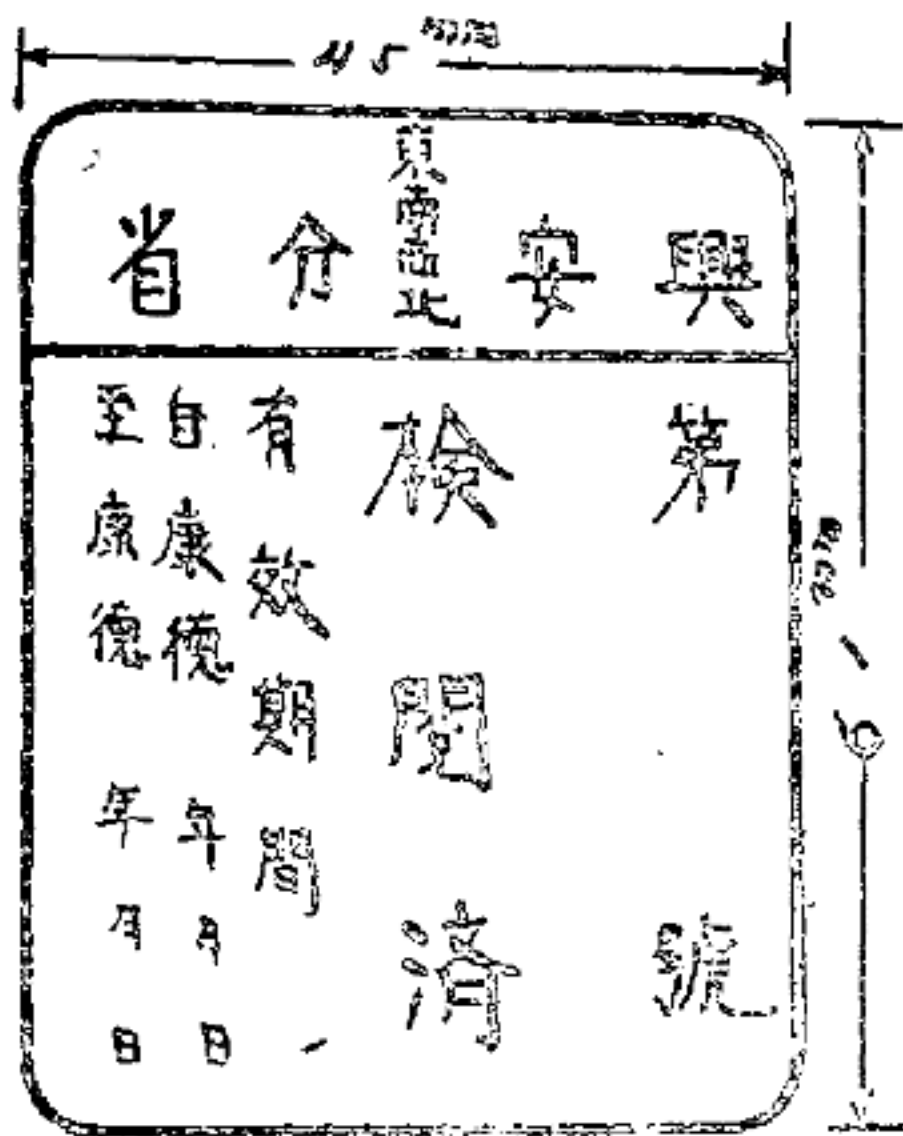 45 mm
興安東南西北分省
第 號
檢閲濟
有效期間
自康德 年 月 日
至康德 年 月 日